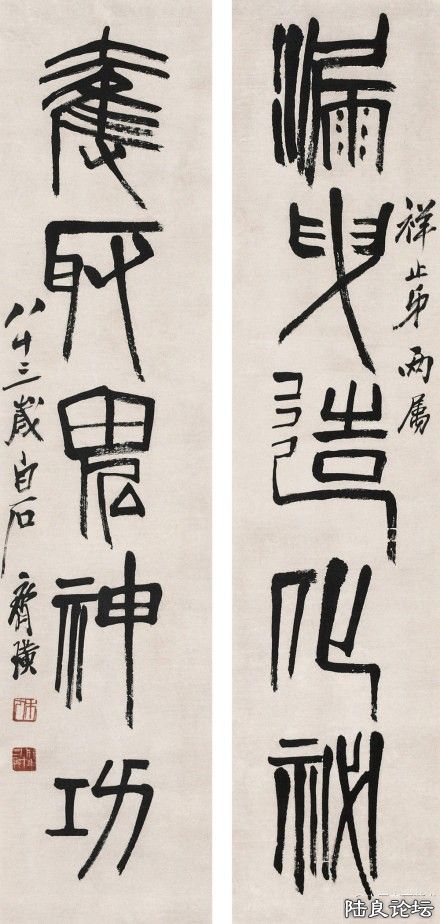 漏曳造化祕
祥止弟两属
奪取鬼神功
八十三歲白石齊璜
陆良论坛